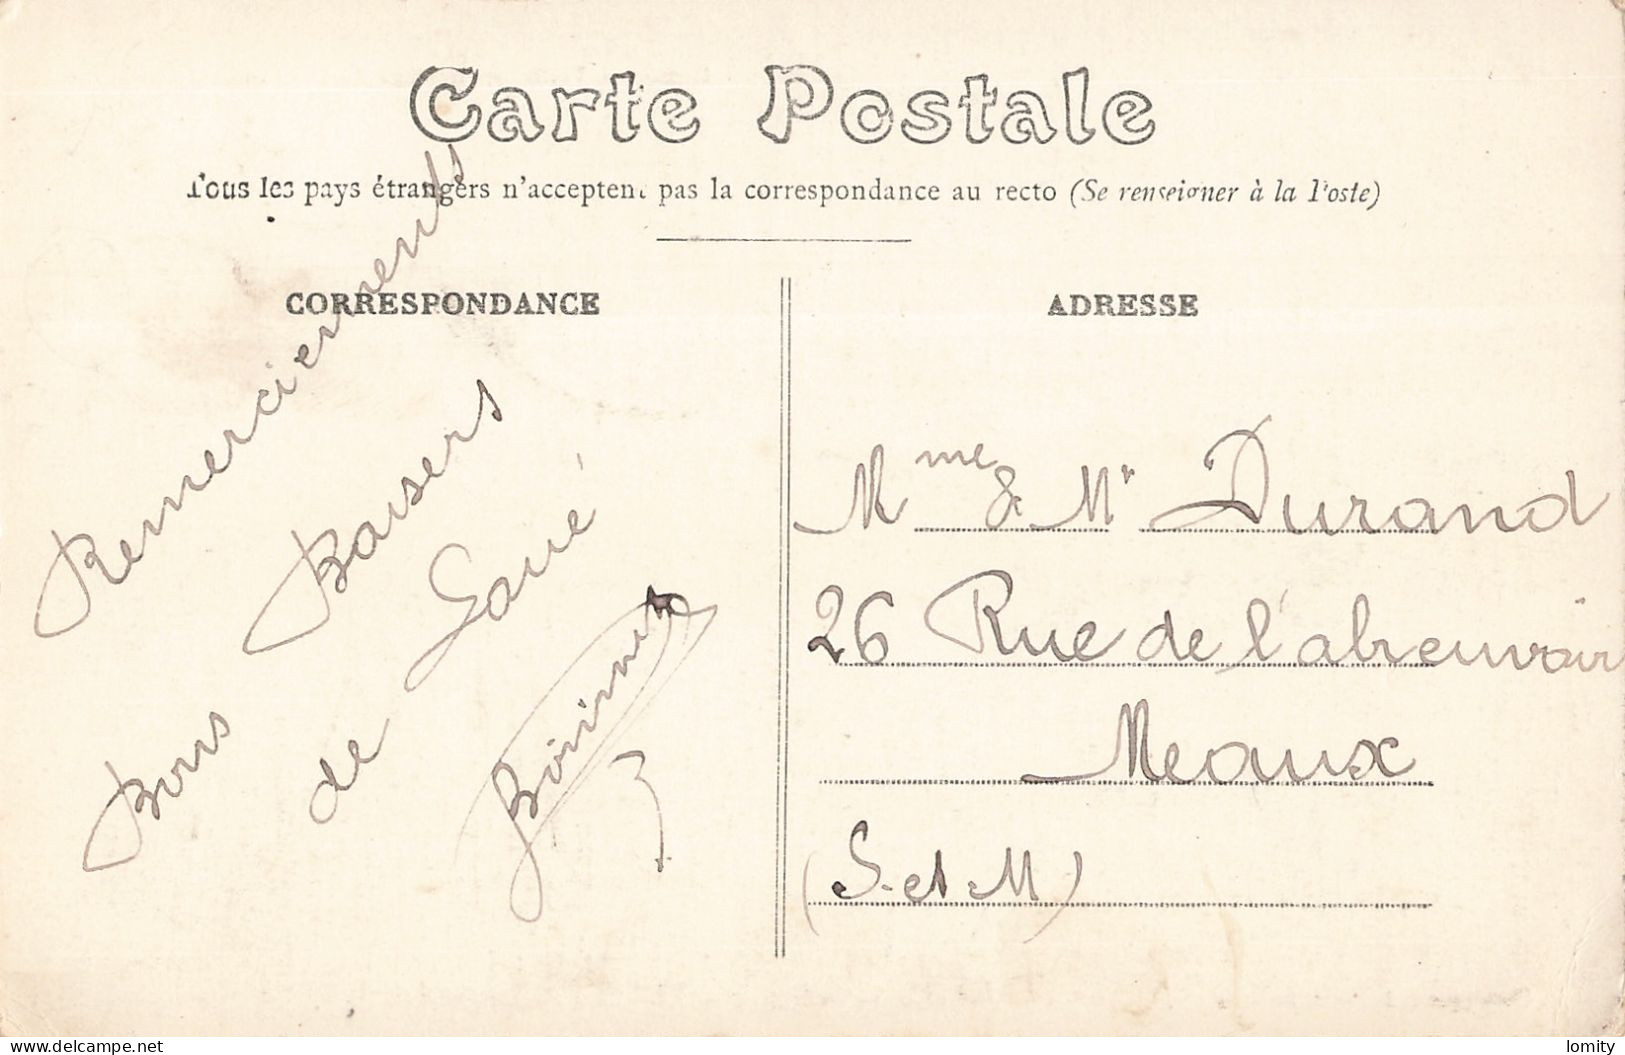 Carte Postale
Tous les pays étrangers n'acceptent pas la correspondance au recto (Se renseigner à la Poste)
CORRESPONDANCE
Remerciements
Bons Baisers
de
ADRESSE
Mme & Mr Durand
26 Rue de l'abreuvoir
Meaux
(S. et M)
www.delcampe.net
lomity